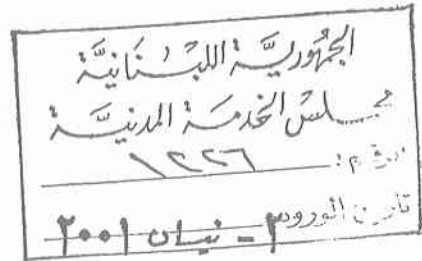 الجمهورية اللبنانية
مجلس الخدمة المدنية
رقم: ١٢٢٦
تاريخ الورود ٣ - نيسان ٢٠٠١